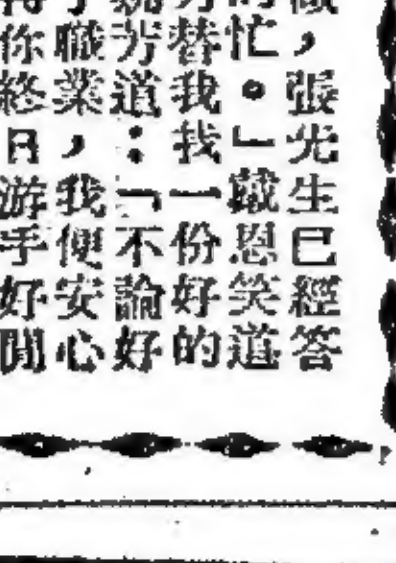 ，張光生已經答
忙。」戴恩笑道
替我找一份好的
芳道：「不論好
職業，我便安心
你終日游手好閒